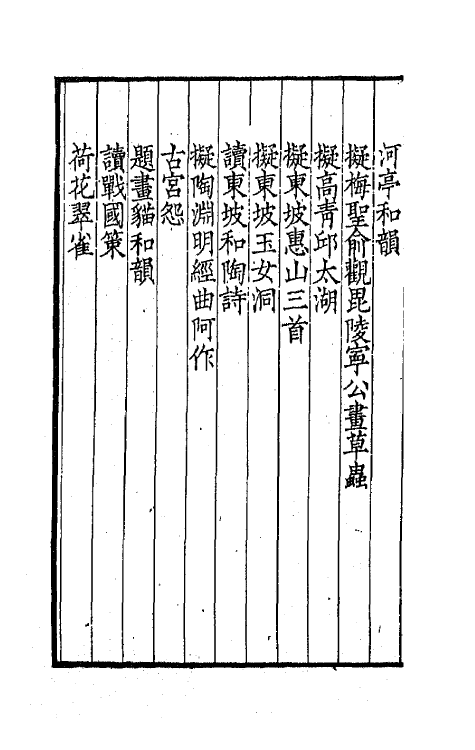 河亭和韻
擬梅聖俞觀毘陵寧公畫草蟲
擬高青邱太湖
擬東坡惠山三首
擬東坡玉女洞
讀東坡和陶詩
擬陶淵明經曲阿作
古宮怨
題畫貓和韻
讀戰國策
荷花翠雀